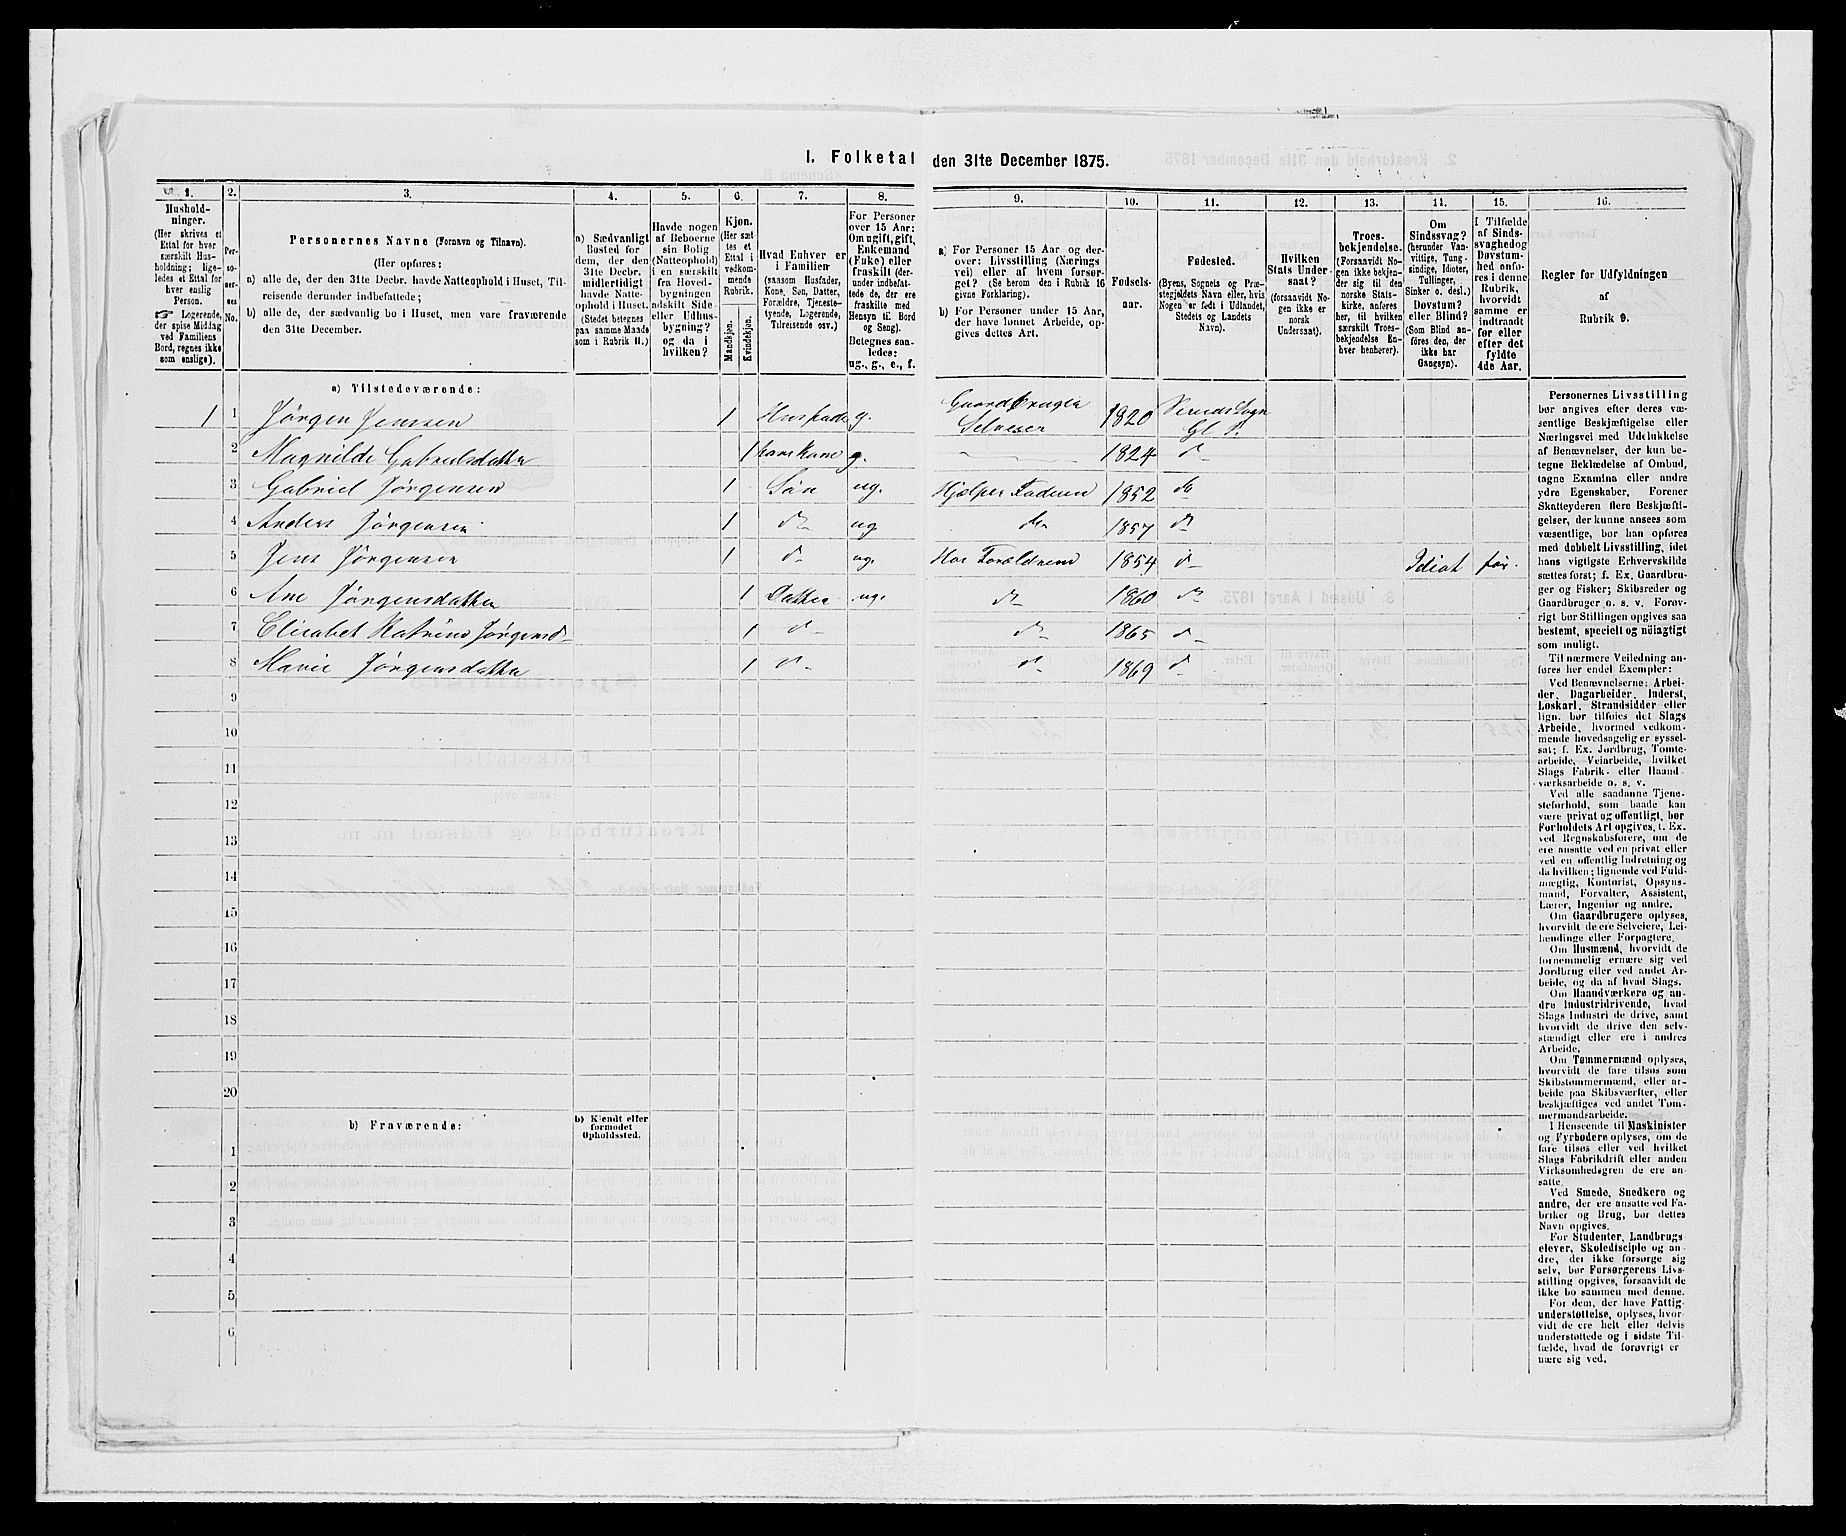 I. Folketal den 31te December 1875.
1. 2. 3. 4. 5. 6. 7. 8. 9. 10. 11. 12. 13. 14. 15. 16.
Hushold-
ninger.
(Her skrives et
Ettal for hver
særskilt Hus-
holdning; lige-
ledes et Ettal for
hver enslig
Person.
☞ Logerende,
der spise Middag
ved Familiens
Bord, regnes ikke
som enslige).
Per-
so-
ner-
nes
No.
Personernes Navne (Fornavn og Tilnavn).
(Her opføres:
a) alle de, der den 31te Decbr. havde Natteophold i Huset, Til-
reisende derunder indbefattede;
b) alle de, der sædvanlig bo i Huset, men vare fraværende
den 31te December.
a) Sædvanligt
Bosted for
dem, der den
31te Decbr.
midlertidigt
havde Natte-
ophold i Huset.
(Stedet betegnes
paa samme Maade
som i Rubrik 11.)
Havde nogen
af Beboerne
sin Bolig
(Natteophold)
i en særskilt
fra Hoved-
bygningen
adskilt Side-
eller Udhus-
bygning?
og da i
hvilken?
Kjøn.
(Her sæt-
tes et
Ettal i
vedkom-
mende
Rubrik.
Mandkjøn.
Kvindekjøn.
Hvad Enhver er
i Familien
(saasom Husfader,
Kone, Søn, Datter,
Forældre, Tjeneste-
tyende, Logerende,
Tilreisende osv.)
For Personer
over 15 Aar:
Om ugift, gift,
Enkemand
(Enke) eller
fraskilt (der-
under indbefat-
tede de, der ere
fraskilte med
Hensyn til Bord
og Seng).
Betegnes saa-
ledes:
ug., g., e., f.
a) For Personer 15 Aar og der-
over: Livsstilling (Nærings
vei) eller af hvem forsør-
get? (Se herom den i Rubrik 16
givne Forklaring).
b) For Personer under 15 Aar,
der have lønnet Arbeide, op-
gives dettes Art.
Fødsels-
aar.
Fødested.
(Byens, Sognets og Præ-
stegjeldets Navn eller, hvis
Nogen er født i Udlandet,
Stedets og Landets
Navn).
Hvilken
Stats Under-
saat?
(forsaavidt No-
gen ikke er
norsk
Undersaat).
Troes-
bekjendelse.
(Forsaavidt No-
gen ikke bekjen-
der sig til den
norske Stats-
kirke, anføres
her, til hvilken
særskilt Troes-
bekjendelse En-
hver henhører).
Om
Sindssvag?
(herunder Van-
vittige, Tung-
sindige, Idioter,
Tullinger,
Sinker o. desl.)
Døvstum?
eller Blind?
(Som Blind an-
føres den, der
ikke har
Gangsyn).
I Tilfælde
af Sinds-
svaghed og
Døvstum-
hed anfø-
res i denne
Rubrik,
hvorvidt
samme er
indtraadt
før eller
efter det
fyldte
4de Aar.
Regler for Udfyldningen
af
Rubrik 9.
a) Tilstedeværende:
1 1 Jørgen Jensen 1 Husfader g. Gaardbruger Selveier 1820 Sogn Gl. P.
2 Magnilde Gabrielsdatter 1 hans Kone g. 1824 do
3 Gabriel Jørgensen 1 Søn ug. Hjælper Faderen 1852 do
4 Anders Jørgensen 1 do ug do 1857 do
5 Jens Jørgensen 1 do ug. Hos Forældrene 1854 do Idiot før.
6 Ane Jørgensdatter 1 Datter ug. do 1860 do
7 Elisabet Katrine Jørgensd 1 do do 1865 do
8 Marie Jørgensdatter 1 do do 1869 do
9
10
11
12
13
14
15
16
17
18
19
20
b) Fraværende:
b) Kjendt eller
formodet
Opholdssted.
1
2
3
4
5
6
Personernes Livsstilling
bør angives efter deres væ-
sentlige Beskjæftigelse eller
Næringsvei med Udelukkelse
af Benævnelser, der kun be-
tegne Beklædelse af Ombud,
tagne Examina eller andre
ydre Egenskaber. Forener
Skatteyderen flere Beskjæfti-
gelser, der kunne ansees som
væsentlige, bør han opføres
med dobbelt Livsstilling, idet
hans vigtigste Erhvervskilde
sættes først; f. Ex. Gaardbru-
ger og Fisker; Skibsreder og
Gaardbruger o. s. v. Forøv-
rigt bør Stillingen opgives saa
bestemt, specielt og nøiagtigt
som muligt.
Til nærmere Veiledning an-
føres her endel Exempler:
Ved Benævnelserne: Arbei-
der, Dagarbeider, Inderst,
Løskarl, Strandsidder eller
lign. bør tilføies det Slags
Arbeide, hvormed vedkom-
mende hovedsagelig er syssel-
sat; f. Ex. Jordbrug, Tomte-
arbeide, Veiarbeide, hvilket
Slags Fabrik- eller Haand-
værksarbeide o. s. v.
Ved alle saadanne Tjene-
steforhold, som baade kan
være privat og offentligt, bør
Forholdets Art opgives, f. Ex.
ved Regnskabsførere, om de
ere ansatte ved en privat eller
ved en offentlig Indretning og
da hvilken; lignende ved Fuld-
mægtig, Kontorist, Opsyns-
mand, Forvalter, Assistent,
Lærer, Ingeniør og andre.
Om Gaardbrugere oplyses,
hvorvidt de ere Selveiere, Lei-
lændinge eller Forpagtere.
Om Husmænd, hvorvidt de
fornemmelig ernære sig ved
Jordbrug eller ved andet Ar-
beide, og da af hvad Slags.
Om Haandværkere og an-
dre Industridrivende, hvad
Slags Industri de drive, samt
hvorvidt de drive den selv-
stændigt eller ere i andres
Arbeide.
Om Tømmermænd oplyses,
hvorvidt de fare tilsøs som
Skibstømmermænd, eller ar-
beide paa Skibsværfter, eller
beskjæftiges ved andet Tøm-
mermandsarbeide.
I Henseende til Maskinister
og Fyrbødere oplyses, om de
fare tilsøs eller ved hvilket
Slags Fabrikdrift eller anden
Virksomhedsgren de ere an-
satte.
Ved Smede, Snedkere og
andre, der ere ansatte ved Fa-
briker og Brug, bør dettes
Navn opgives.
For Studenter, Landbrugs
elever, Skoledisciple og an-
dre, der ikke forsørge sig
selv, bør Forsørgerens Livs-
stilling opgives, forsaavidt de
ikke bo sammen med denne.
For dem, der have Fattig-
understøttelse, oplyses, hvor-
vidt de ere helt eller delvis
understøttede og i sidste Til-
fælde, hvad de forøvrigt er
nære sig ved.